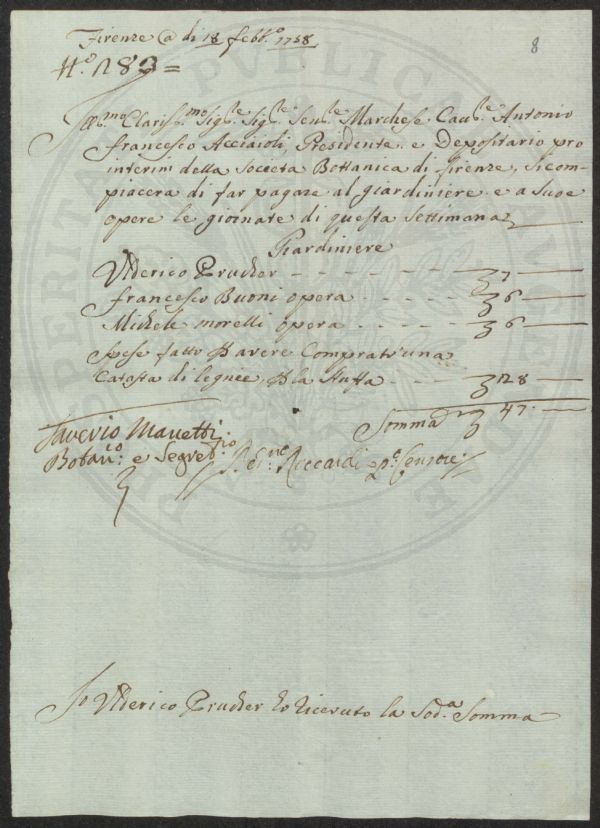 Firenze @ di 18 febb.º 1758
8
N.º 283 =
Ill.mo Clariss.mo Sig.re Sig.re Sen.re Marchese Cav.re Antonio
Francesco Acciaioli, Presidente e Depositario pro
interim della Società Bottanica di firenze, si com-
piacera di far pagare al giardiniere e a Sue
opere le giornate di questa Settimana
Giardiniere
Ulderico Prucher - - - - - 7
Francesco Buoni opera - - - 6
Michele morelli opera - - - 6
Spese fatto P avere Comprato una
Catasta di legnie, P la Stuffa - - - 28
Somma 47
Saverio Manetti
Botan.co e Segret.rio
Riccardi p.º Censore
Io Ulderico Prucher ho ricevuto la Sod.a Somma